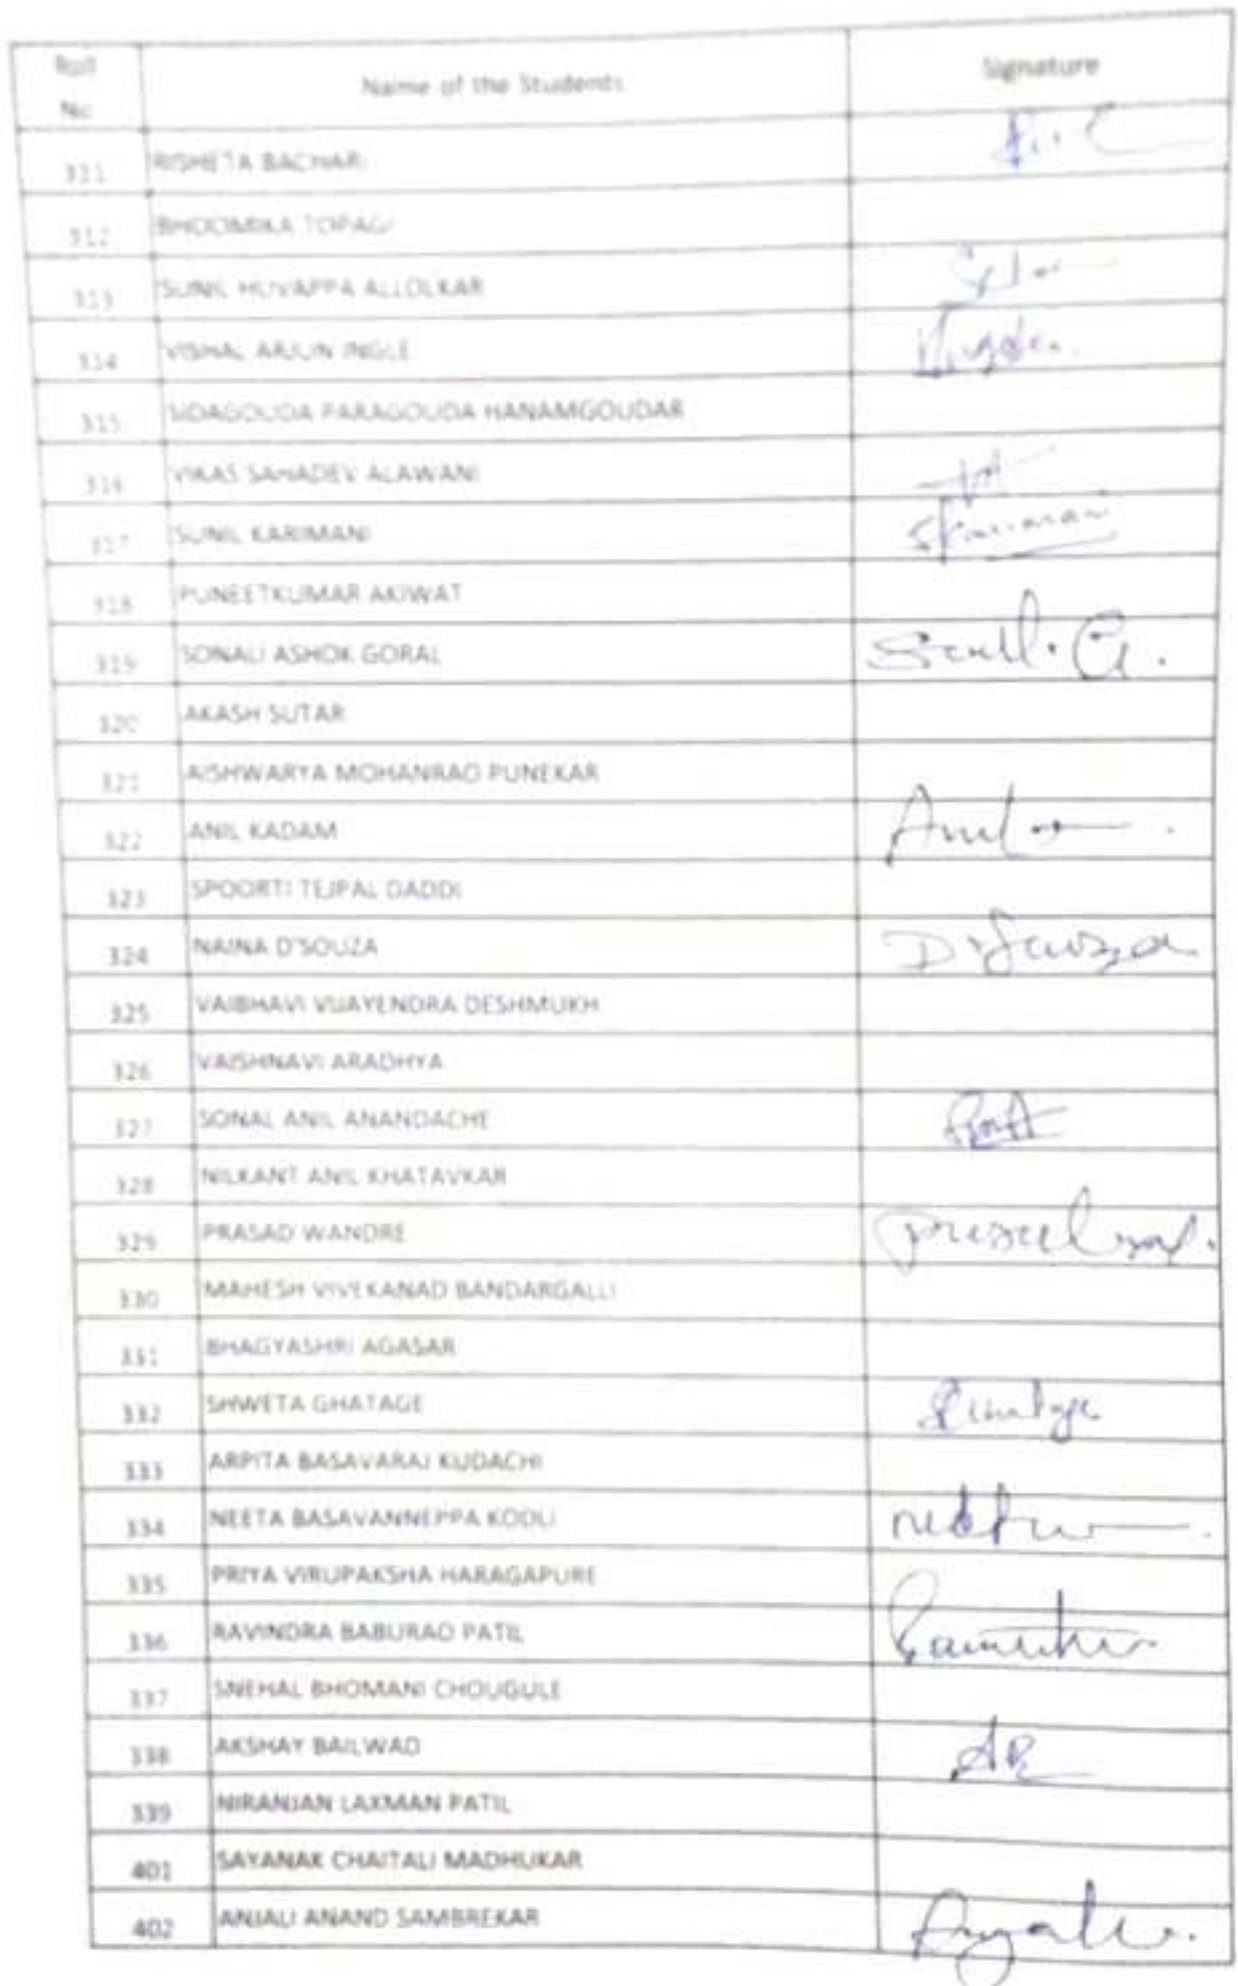 Roll No Name of the Students Signature
311 RISHETA BACHARI
312 BHOOMIKA TOPAGI
313 SUNIL HUVAPPA ALLOLKAR
314 VISHAL ARJUN INGLE
315 SIDAGOUDA PARAGOUDA HANAMGOUDAR
316 VIKAS SAHADEV ALAWANI
317 SUNIL KARIMANI
318 PUNEETKUMAR AKIWAT
319 SONALI ASHOK GORAL
320 AKASH SUTAR
321 AISHWARYA MOHANRAO PUNEKAR
322 ANIL KADAM
323 SPOORTI TEJPAL DADDI
324 NAINA D'SOUZA D'Souza
325 VAIBHAVI VIJAYENDRA DESHMUKH
326 VAISHNAVI ARADHYA
327 SONAL ANIL ANANDACHE
328 NILKANT ANIL KHATAVKAR
329 PRASAD WANDRE
330 MAHESH VIVEKANAD BANDARGALLI
331 BHAGYASHRI AGASAR
332 SHWETA GHATAGE
333 ARPITA BASAVARAJ KUDACHI
334 NEETA BASAVANNEPPA KOOLI
335 PRIYA VIRUPAKSHA HARAGAPURE
336 RAVINDRA BABURAO PATIL
337 SNEHAL BHOMANI CHOUGULE
338 AKSHAY BAILWAD
339 NIRANJAN LAXMAN PATIL
401 SAYANAK CHAITALI MADHUKAR
402 ANJALI ANAND SAMBREKAR